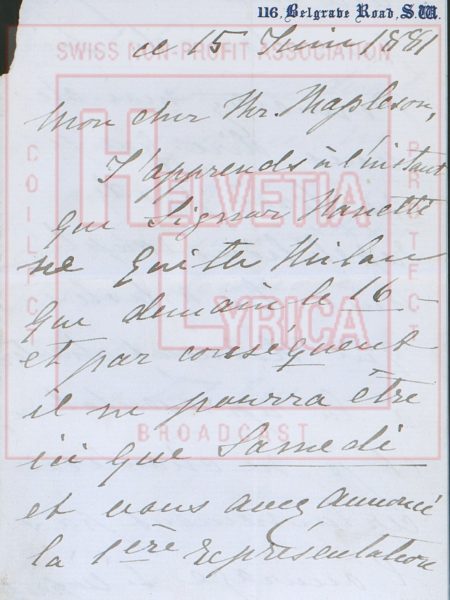 116, Belgrave Road, S.W.
ce 15 Juin 1881
Mon cher Mr. Mapleson,
J'apprends à l'instant
que Signor Nanetti
ne quitte Milan
que demain le 16
et par conséquent
il ne pourra être
ici que Samedi
et vous avez annoncé
la 1ère représentation
SWISS NON-PROFIT ASSOCIATION
COLLECT
HELVETIA
LYRICA
PROTECT
BROADCAST